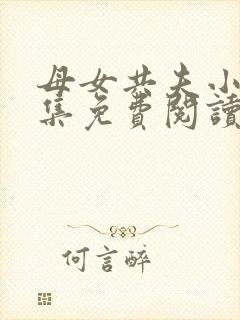 母女共夫小
集免費閱讀
何言醉